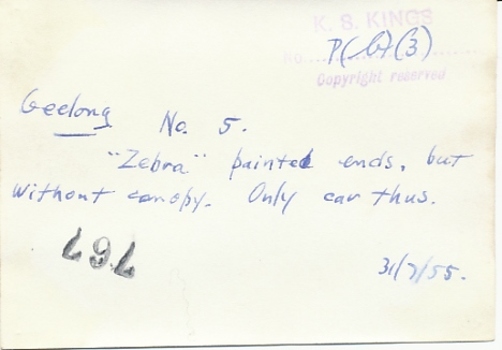 K. S. KINGS
No. P(b)(3)
Copyright reserved
Geelong No. 5.
"Zebra" painted ends, but
without canopy. Only car thus.
31/7/55.